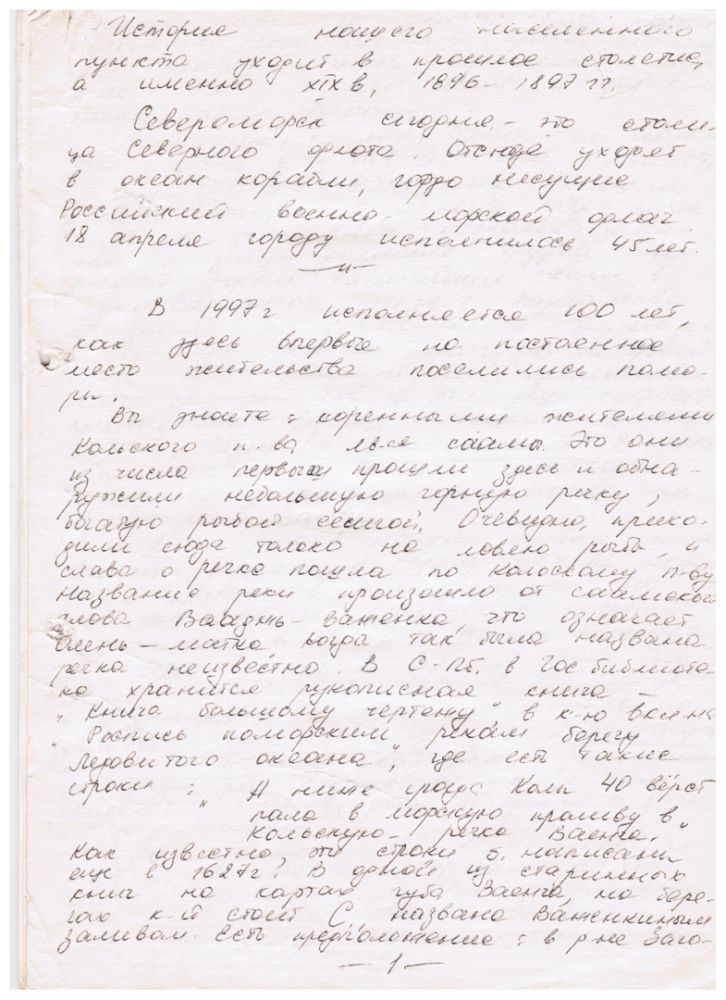 История нашего населенного
пункта уходит в прошлое столетие,
а именно XIX в, 1896-1897 гг.
Североморск сегодня - это столи-
ца Северного флота. Отсюда уходят
в океан корабли, гордо несущие
Российский военно-морской флаг.
18 апреля городу исполнилось 45 лет.
— " —
В 1997 г исполняется 100 лет,
как здесь впервые на постоянное
место жительства поселились помо-
ры.
Вы знаете: коренными жителями
Кольского п-ва яв-ся саамы. Это они
из числа первых прошли здесь и обна-
ружили небольшую горную речку,
богатую рыбой сёмгой. Очевидно, прихо-
дили сюда только на ловлю рыбы, и
слава о речке пошла по Кольскому п-ву
Название реки произошло от саамского
слова Ваадж - важенка, что означает
олень - матка когда так была названа
речка неизвестно. В С-Пб. в Гос библиоте-
ке хранится рукописная книга -
"Книга большому чертежу", в к-ю
"Роспись поморским рекам берегу
Ледовитого океана", где есть такие
строки: " А ниже града Колы 40 вёрст
пала в морскую проливу в
Кольскую - речка Ваенга."
Как известно, эти строки б. написаны
еще в 1627 г. В одной из старинных
книг на картах губа Ваенга, на бере-
гах к-й стоит С названа Важенкиным
заливом. Есть предположение: в р-не Заго-
— 1 —